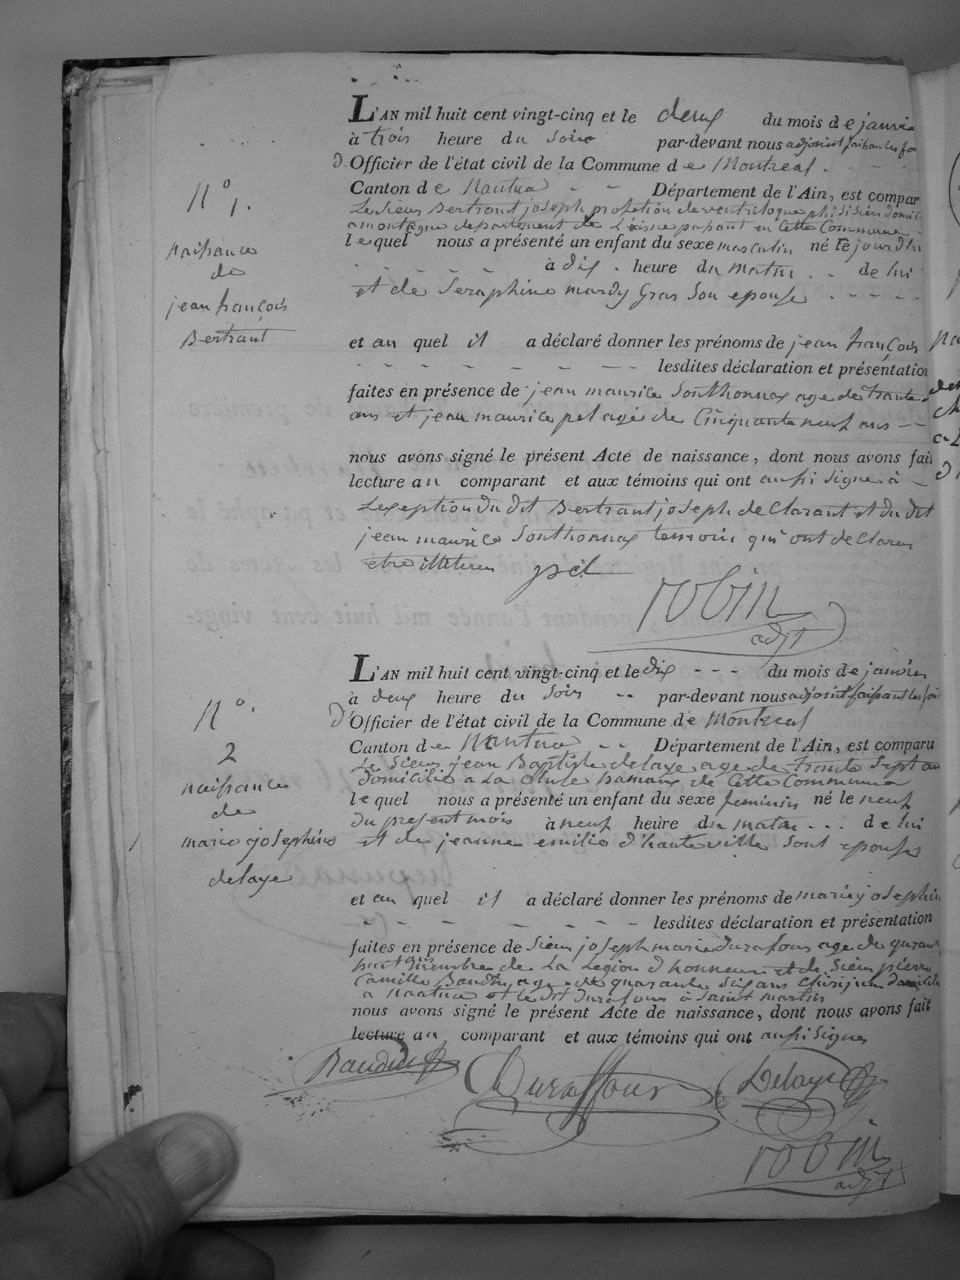 L'AN mil huit cent vingt-cinq et le deux du mois de janvie
à trois heure du soir par-devant nous adjoint faisant les fon
d. Officier de l'état civil de la Commune de Montreal
Canton de Nantua Département de l'Ain, est compar
Le Sieur Bertrant joseph profetion de ventriloque phisisien domicil
a montagne departement de passant en Cette Commune
lequel nous a présenté un enfant du sexe masculin né le jourdhui
à dix heure du matin de lui
et de Seraphine mardy Gras Son epouse
et au quel il a déclaré donner les prénoms de jean françois
lesdites déclaration et présentation
faites en présence de jean maurice Sonthonnax age de trante
ans et jean maurice pel agé de Cinquante neuf ans
nous avons signé le présent Acte de naissance, dont nous avons fait
lecture au comparant et aux témoins qui ont aussi signé à
Lexeption du dit Bertrant joseph de Clarant et du dit
jean maurice Sonthonnax temoin qui ont de Clarer
etre illeterer pel
robin
adjt
N° 1.
Naissance
de
jean françois
Bertrant
L'AN mil huit cent vingt-cinq et le dix du mois de janvier
à deux heure du soir par-devant nous adjoint faissant les fon
d'Officier de l'état civil de la Commune de Montreal
Canton de Nantua Département de l'Ain, est comparu
Le Sieur jean Baptiste delaye age de trante Sept an
domicilié a La Cluse hamaux de Cette Commune
lequel nous a présenté un enfant du sexe feminin né le neuf
du present mois à neuf heure du matin de lui
et de jeanne emilie d'hauteville Sont epouse
et au quel il a déclaré donner les prénoms de marie josephine
lesdites déclaration et présentation
faites en présence de Sieur joseph marie durafour age de quarante
huit Membre de La Legion d honneur et de Sieur pierre
Camille Baudin age de quarante Six ans Chirurgien domicilié
a Nantua et le dit durafour à Saint martin
nous avons signé le présent Acte de naissance, dont nous avons fait
lecture au comparant et aux témoins qui ont aussi Signer
Baudin Duraffour Delaye
robin
adjt
N°.
2
naissance
de
marie josephine
delaye